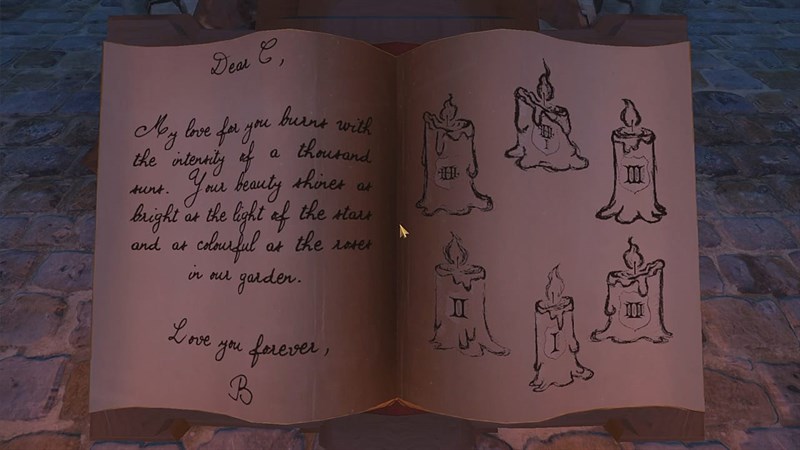 Dear C,
My love for you burns with
the intensity of a thousand
suns. Your beauty shines as
bright as the light of the stars
and as colourful as the roses
in our garden.
Love you forever,
B
III
II
I